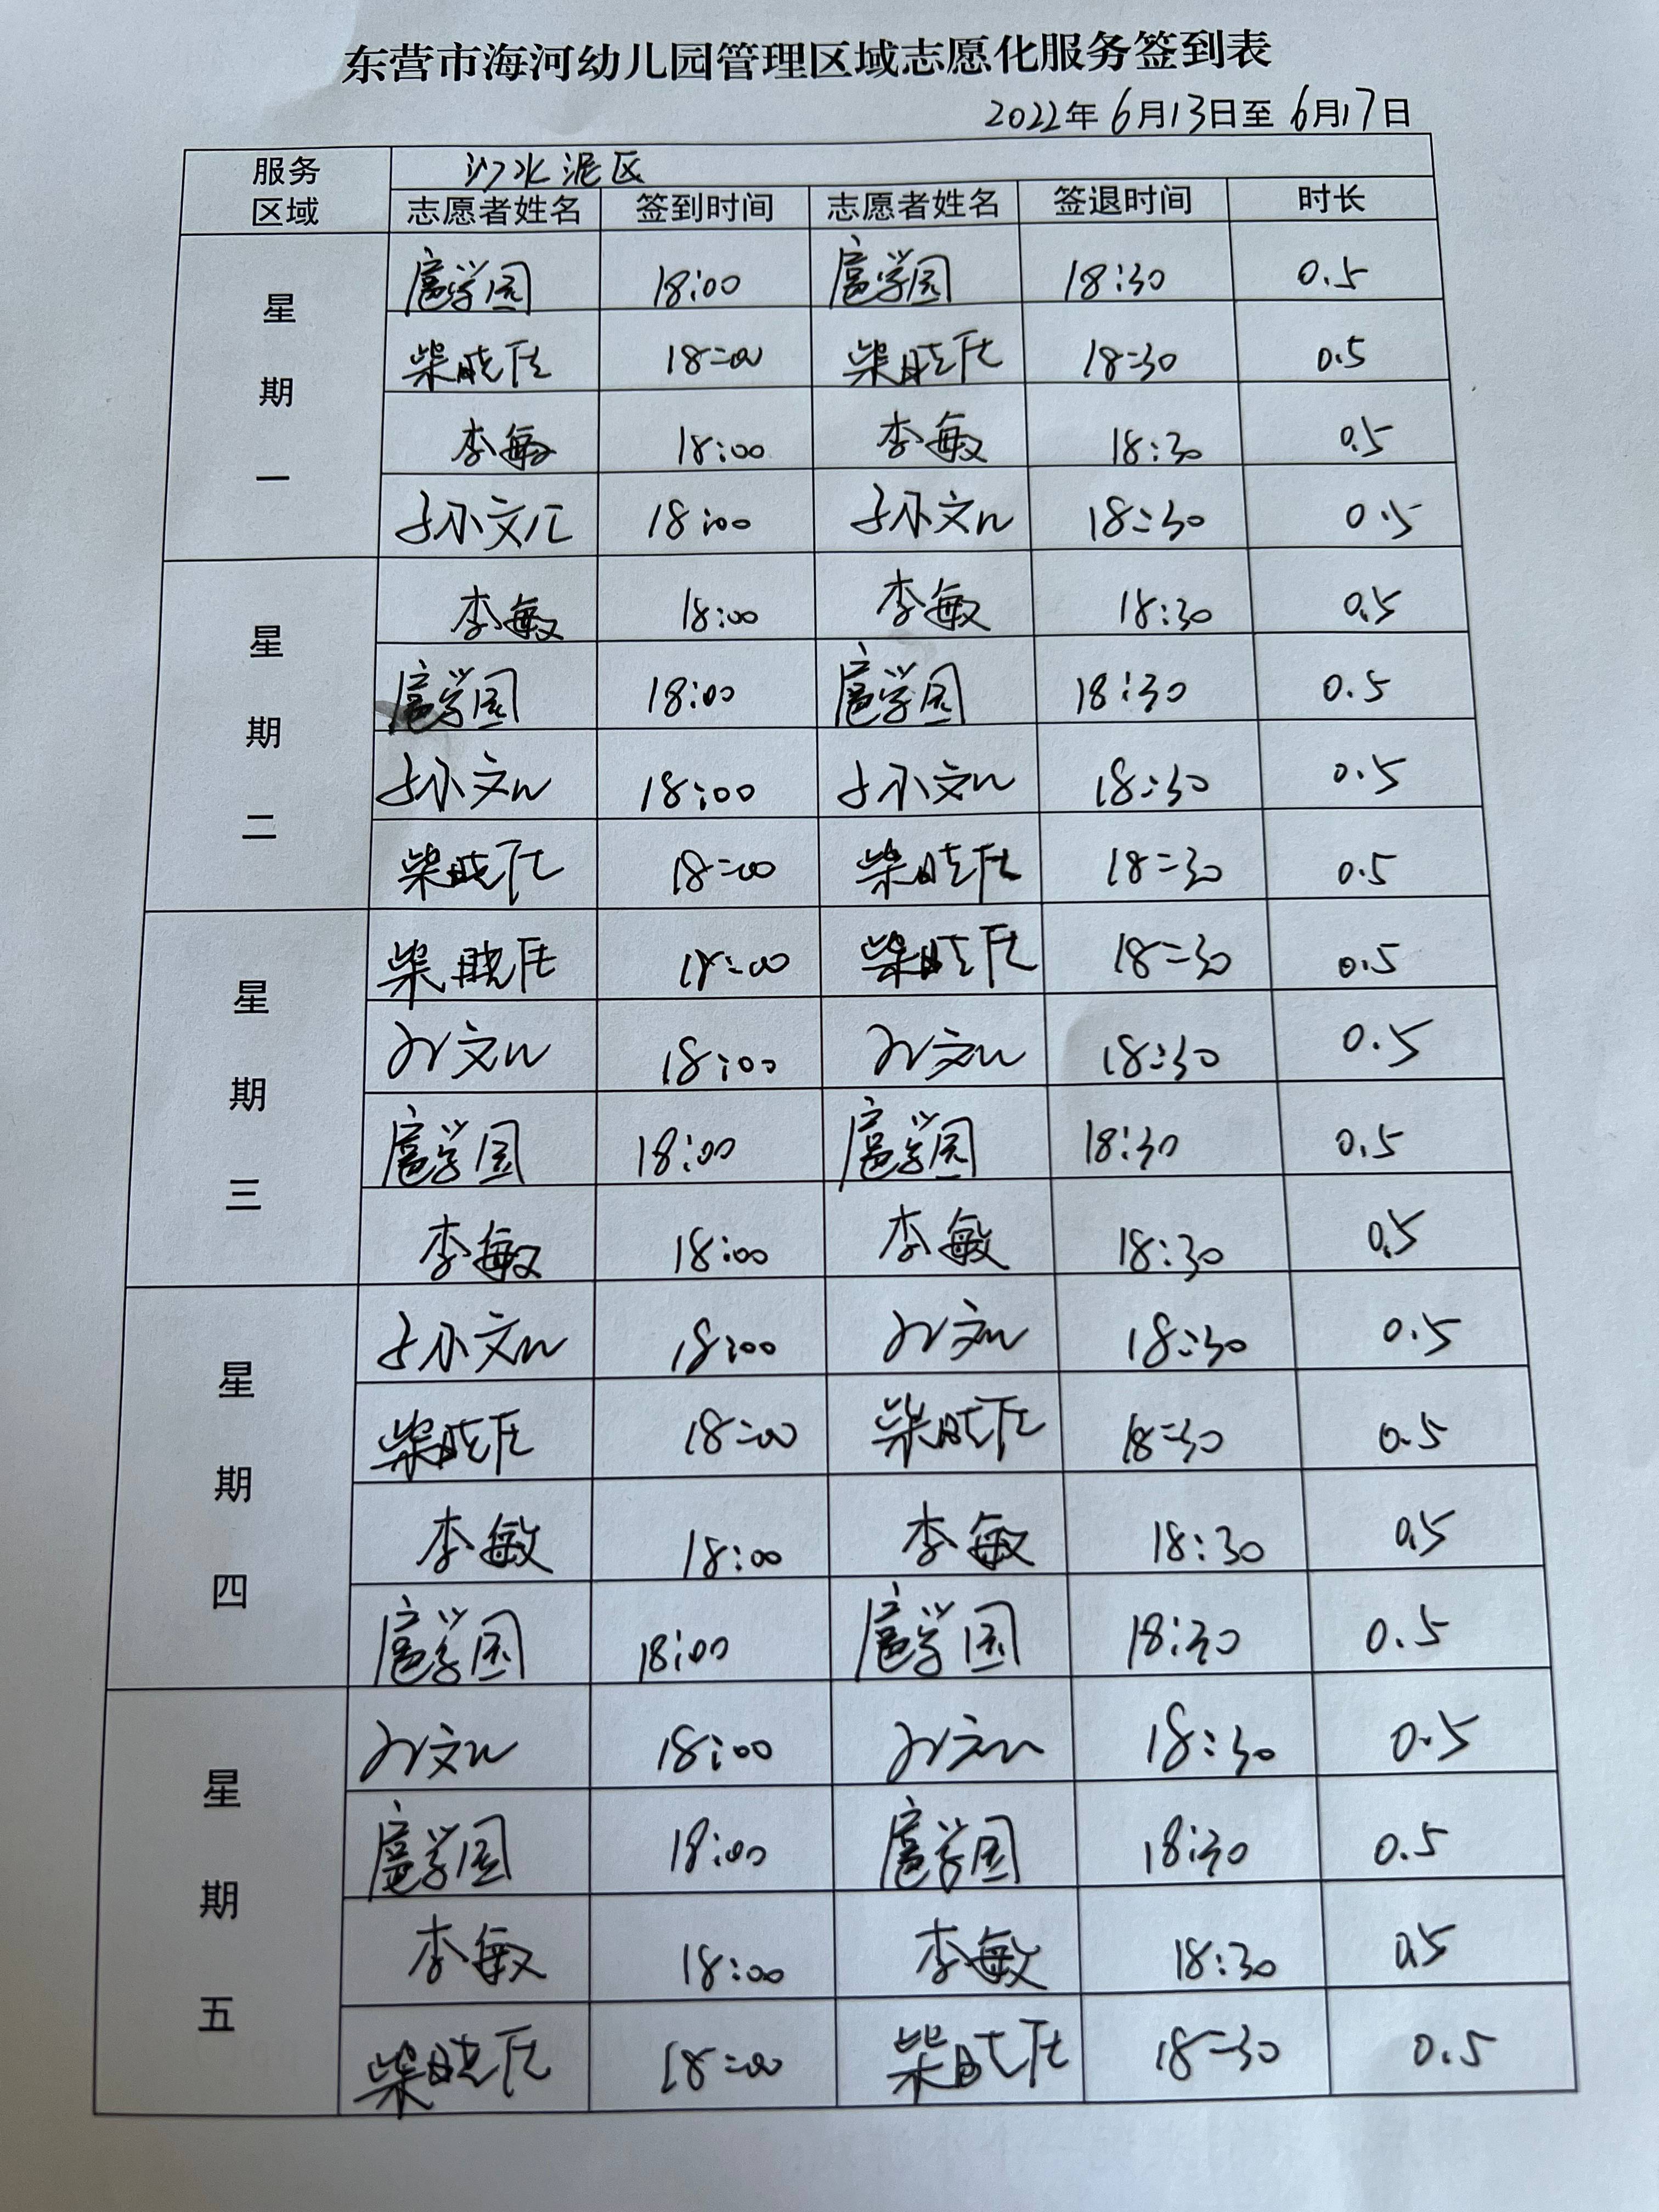 东营市海河幼儿园管理区域志愿化服务签到表
2022年6月13日至6月17日
服务区域 沙水泥区
志愿者姓名 签到时间 志愿者姓名 签退时间 时长
星期一
扈学园 18:00 扈学园 18:30 0.5
柴晓 18:00 柴晓 18:30 0.5
李敏 18:00 李敏 18:30 0.5
孙文 18:00 孙文 18:30 0.5
星期二
李敏 18:00 李敏 18:30 0.5
扈学园 18:00 扈学园 18:30 0.5
孙文 18:00 孙文 18:30 0.5
柴晓 18:00 柴晓 18:30 0.5
星期三
柴晓 18:00 柴晓 18:30 0.5
孙文 18:00 孙文 18:30 0.5
扈学园 18:00 扈学园 18:30 0.5
李敏 18:00 李敏 18:30 0.5
星期四
孙文 18:00 孙文 18:30 0.5
柴晓 18:00 柴晓 18:30 0.5
李敏 18:00 李敏 18:30 0.5
扈学园 18:00 扈学园 18:30 0.5
星期五
孙文 18:00 孙文 18:30 0.5
扈学园 18:00 扈学园 18:30 0.5
李敏 18:00 李敏 18:30 0.5
柴晓 18:00 柴晓 18:30 0.5